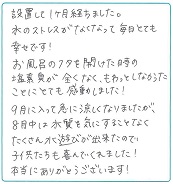 設置して1ヶ月経ちました。
水のストレスがなくなって毎日とても
幸せです!
お風呂のフタを開けた時の
塩素臭が全くなく、もわっとしなかった
ことにとても感動しました!
9月に入って急に涼しくなりましたが
8月中は水質を気にすることなく
たくさん水遊びが出来たので
子供たちも喜んでくれました!
本当にありがとうございます!